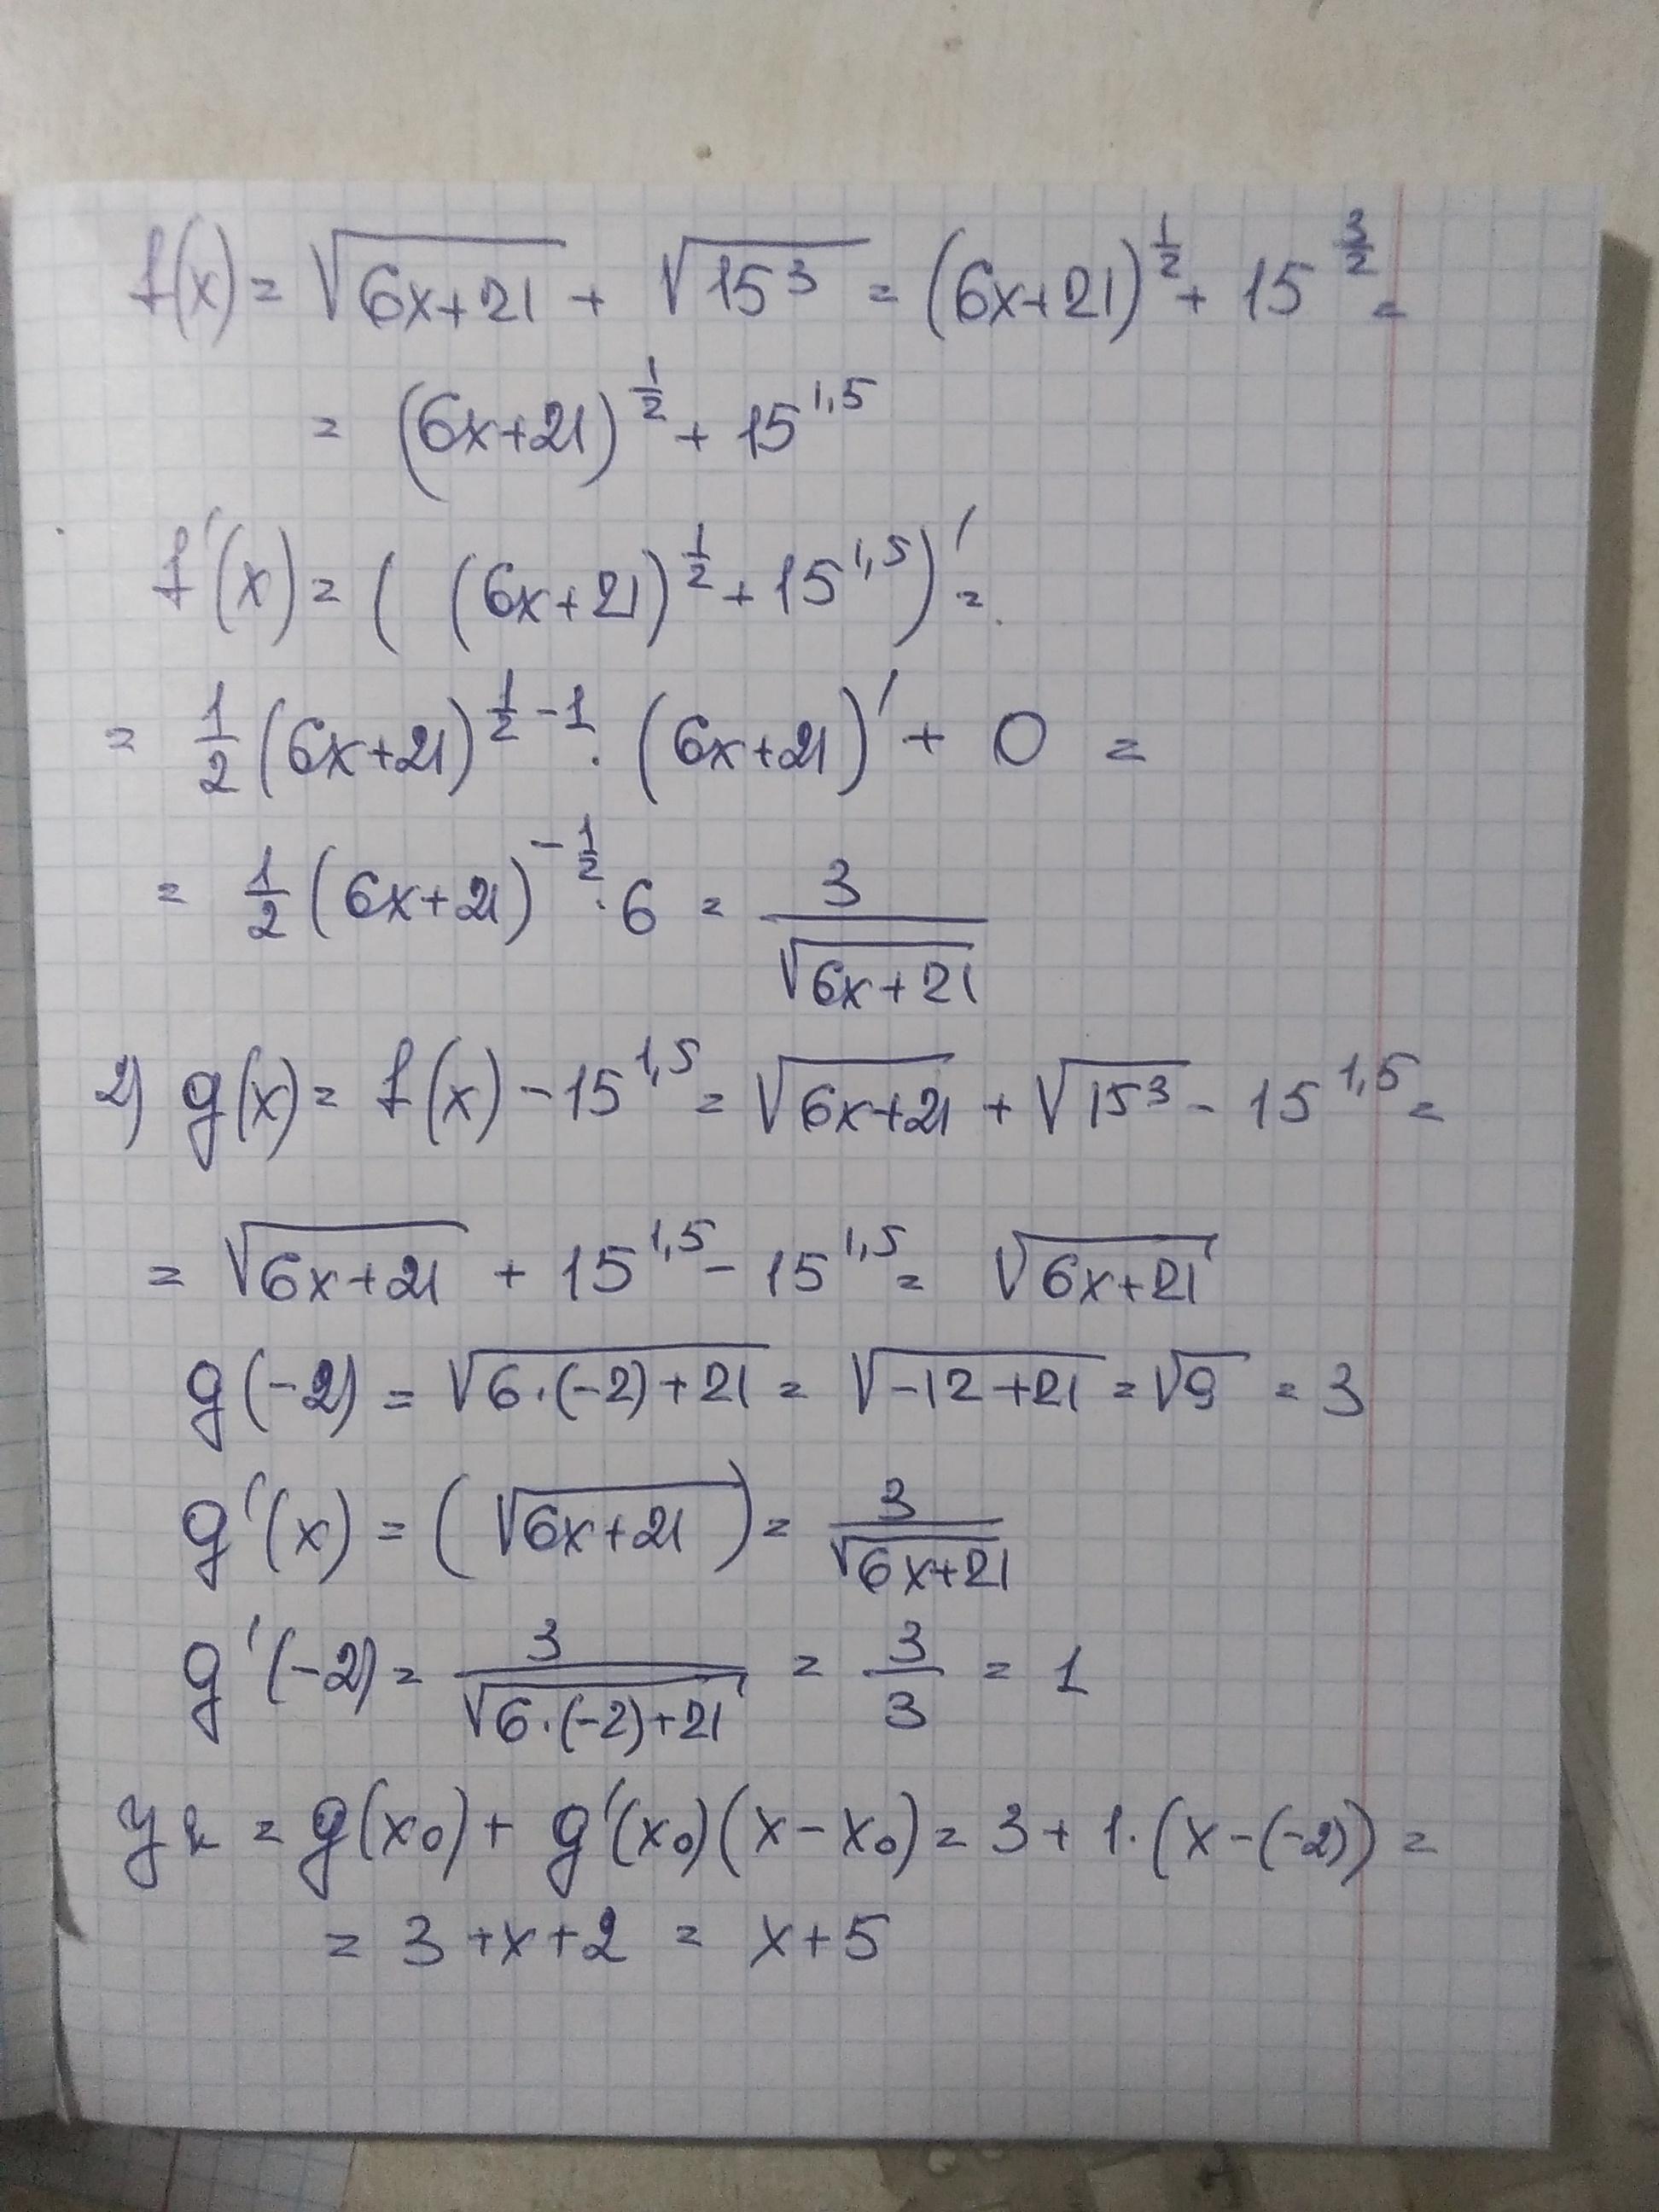 f(x) = √(6x+21) + √(15³) = (6x+21)^(1/2) + 15^(3/2) =
= (6x+21)^(1/2) + 15^(1,5)
f'(x) = ( (6x+21)^(1/2) + 15^(1,5) )' =
= 1/2 (6x+21)^(1/2 - 1) · (6x+21)' + 0 =
= 1/2 (6x+21)^(-1/2) · 6 = 3/√(6x+21)
2) g(x) = f(x) - 15^(1,5) = √(6x+21) + √(15³) - 15^(1,5) =
= √(6x+21) + 15^(1,5) - 15^(1,5) = √(6x+21)
g(-2) = √(6·(-2)+21) = √(-12+21) = √9 = 3
g'(x) = (√(6x+21)) = 3/√(6x+21)
g'(-2) = 3/√(6·(-2)+21) = 3/3 = 1
y = g(x₀) + g'(x₀)(x - x₀) = 3 + 1·(x-(-2)) =
= 3 + x + 2 = x + 5